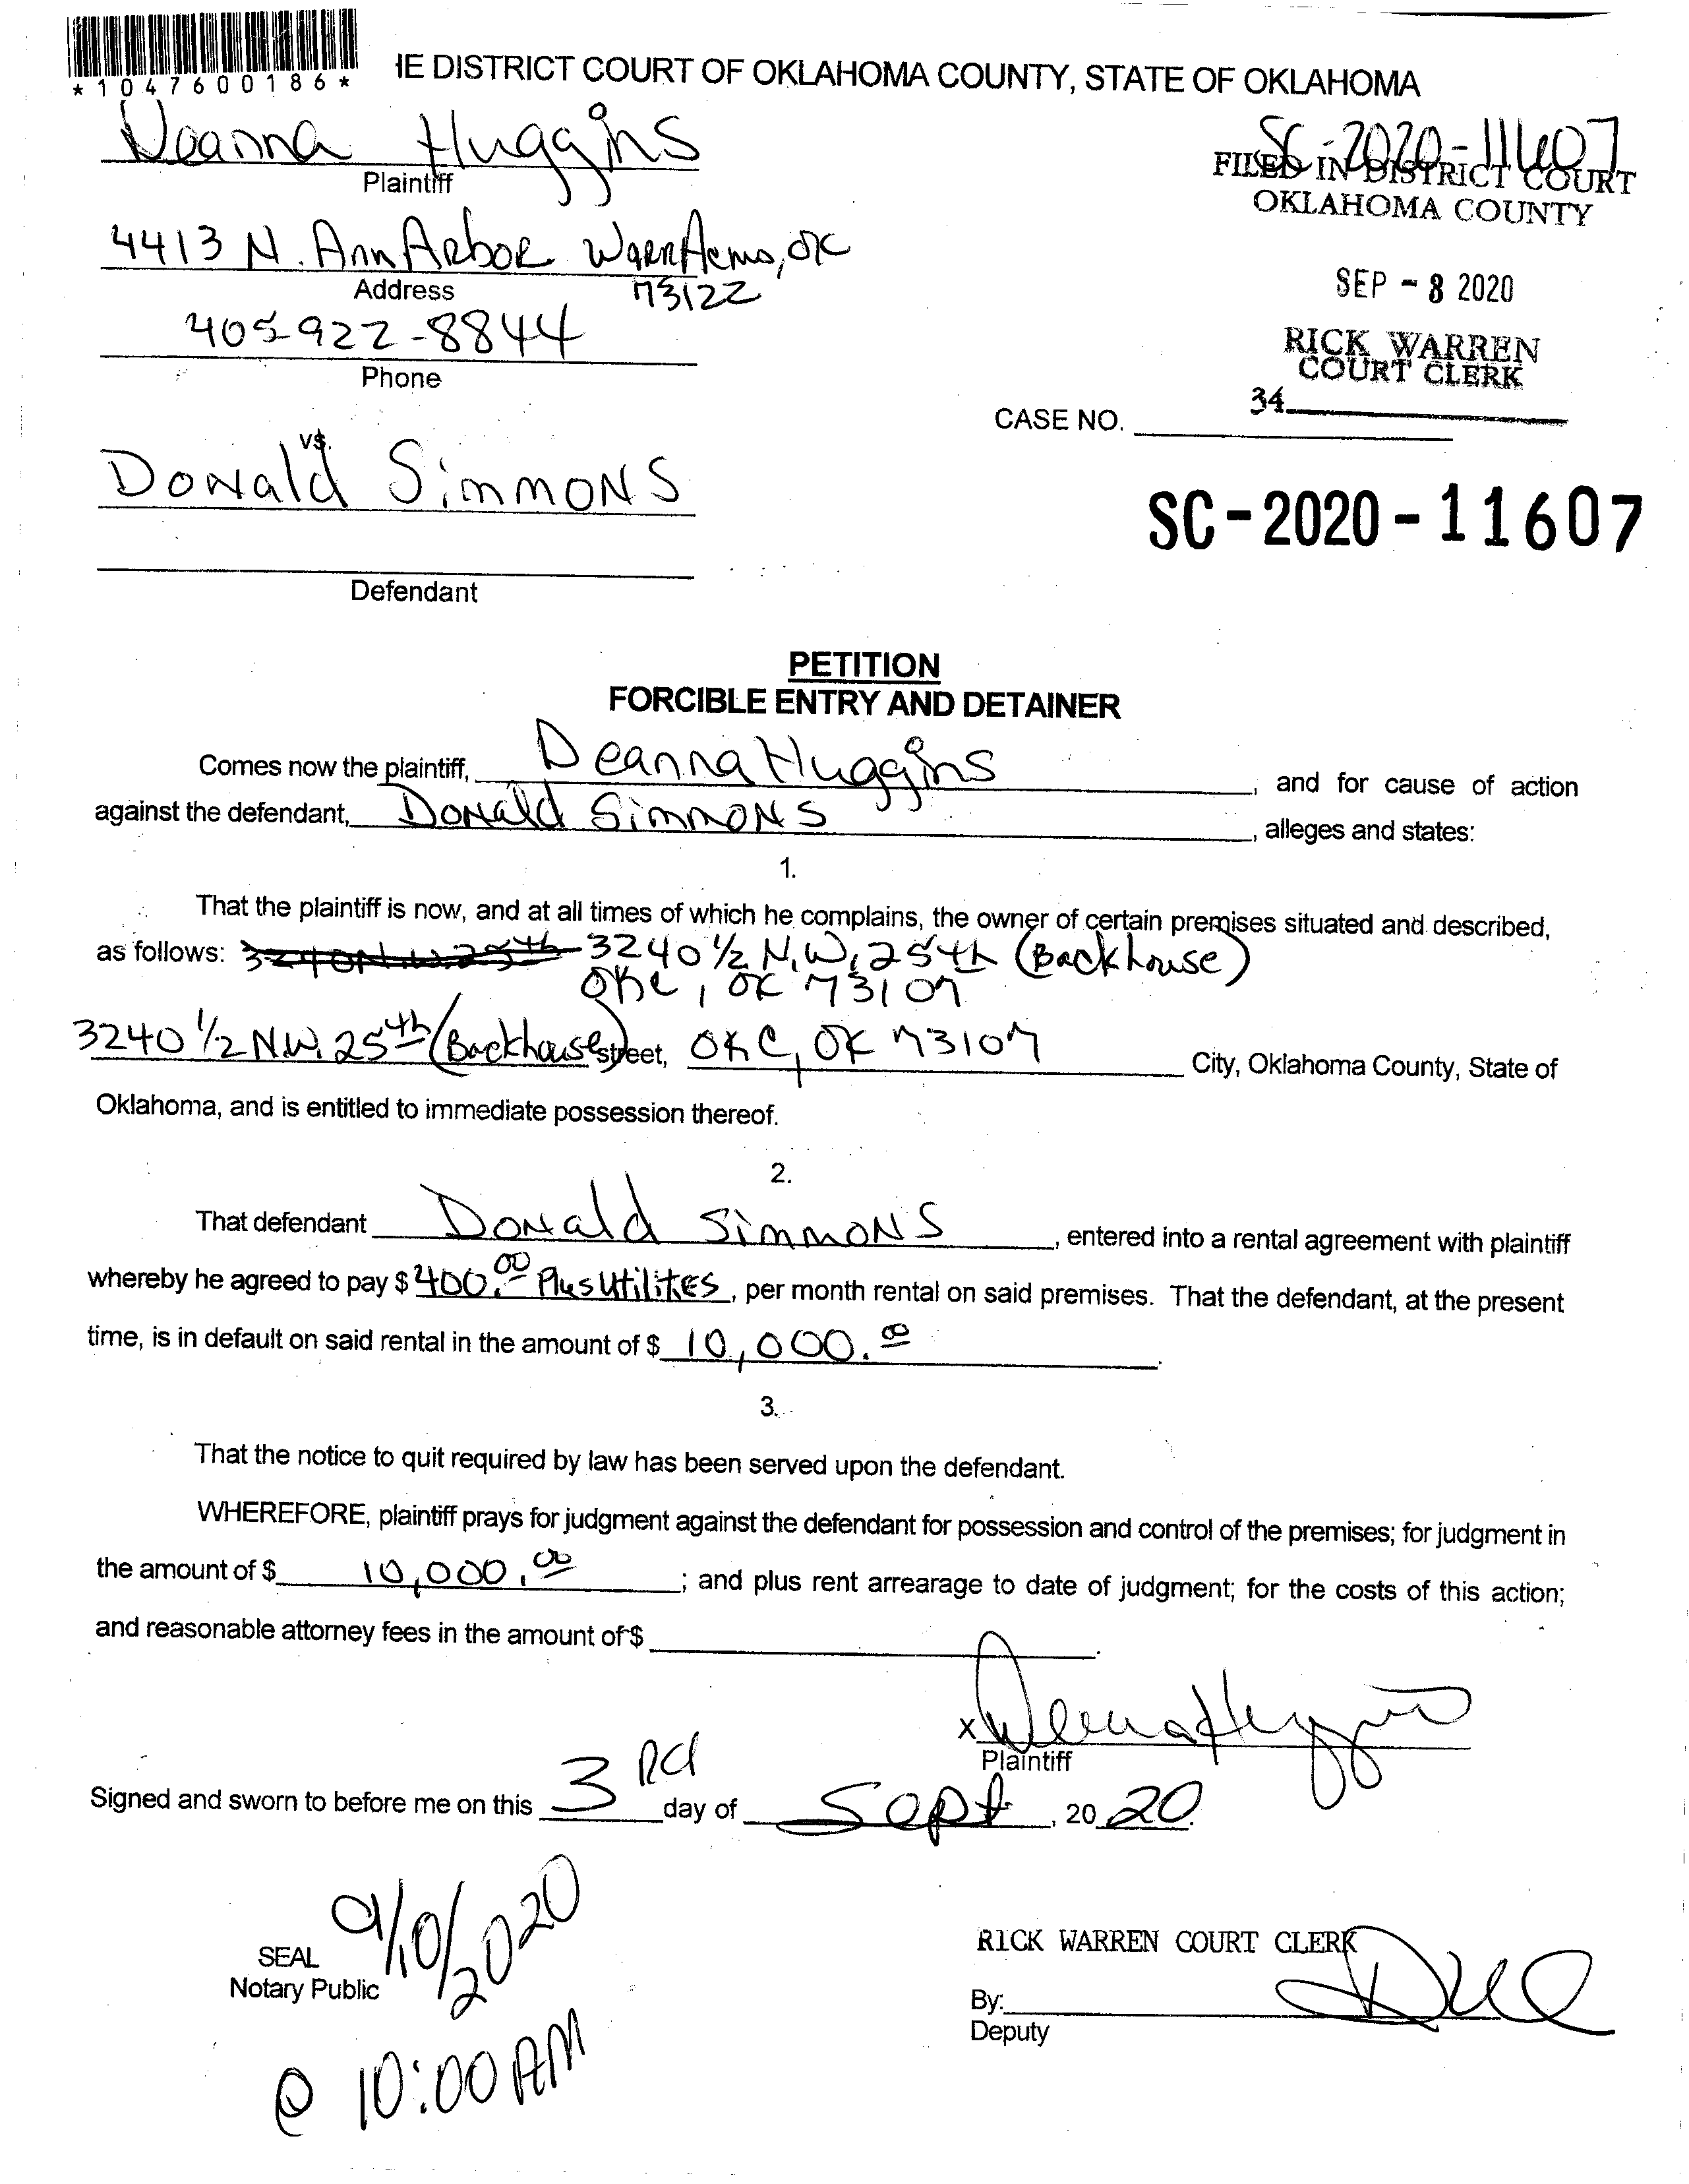 *1047600186*
IE DISTRICT COURT OF OKLAHOMA COUNTY, STATE OF OKLAHOMA
Deanna Huggins
Plaintiff
SC-2020-11607
FILED IN DISTRICT COURT
OKLAHOMA COUNTY
4413 N. Ann Arbor Warr Acres, OK
Address
73122
SEP - 8 2020
405-922-8844
Phone
RICK WARREN
COURT CLERK
34
CASE NO.
vs.
Donald Simmons
SC-2020-11607
Defendant
PETITION
FORCIBLE ENTRY AND DETAINER
Comes now the plaintiff, Deanna Huggins, and for cause of action
against the defendant, Donald Simmons, alleges and states:
1.
That the plaintiff is now, and at all times of which he complains, the owner of certain premises situated and described,
as follows: 3240 N.W. 25th 3240 1/2 N.W. 25th (Backhouse)
OKC, OK 73107
3240 1/2 N.W. 25th (Backhouse) street, OKC, OK 73107 City, Oklahoma County, State of
Oklahoma, and is entitled to immediate possession thereof.
2.
That defendant Donald Simmons, entered into a rental agreement with plaintiff
whereby he agreed to pay $ 400.00 Plus Utilites, per month rental on said premises. That the defendant, at the present
time, is in default on said rental in the amount of $ 10,000.00.
3.
That the notice to quit required by law has been served upon the defendant.
WHEREFORE, plaintiff prays for judgment against the defendant for possession and control of the premises; for judgment in
the amount of $ 10,000.00; and plus rent arrearage to date of judgment; for the costs of this action;
and reasonable attorney fees in the amount of $ .
x Deanna Huggins
Plaintiff
Signed and sworn to before me on this 3rd day of Sept, 20 20.
9/10/2020
SEAL
Notary Public
@ 10:00 AM
RICK WARREN COURT CLERK
By:
Deputy